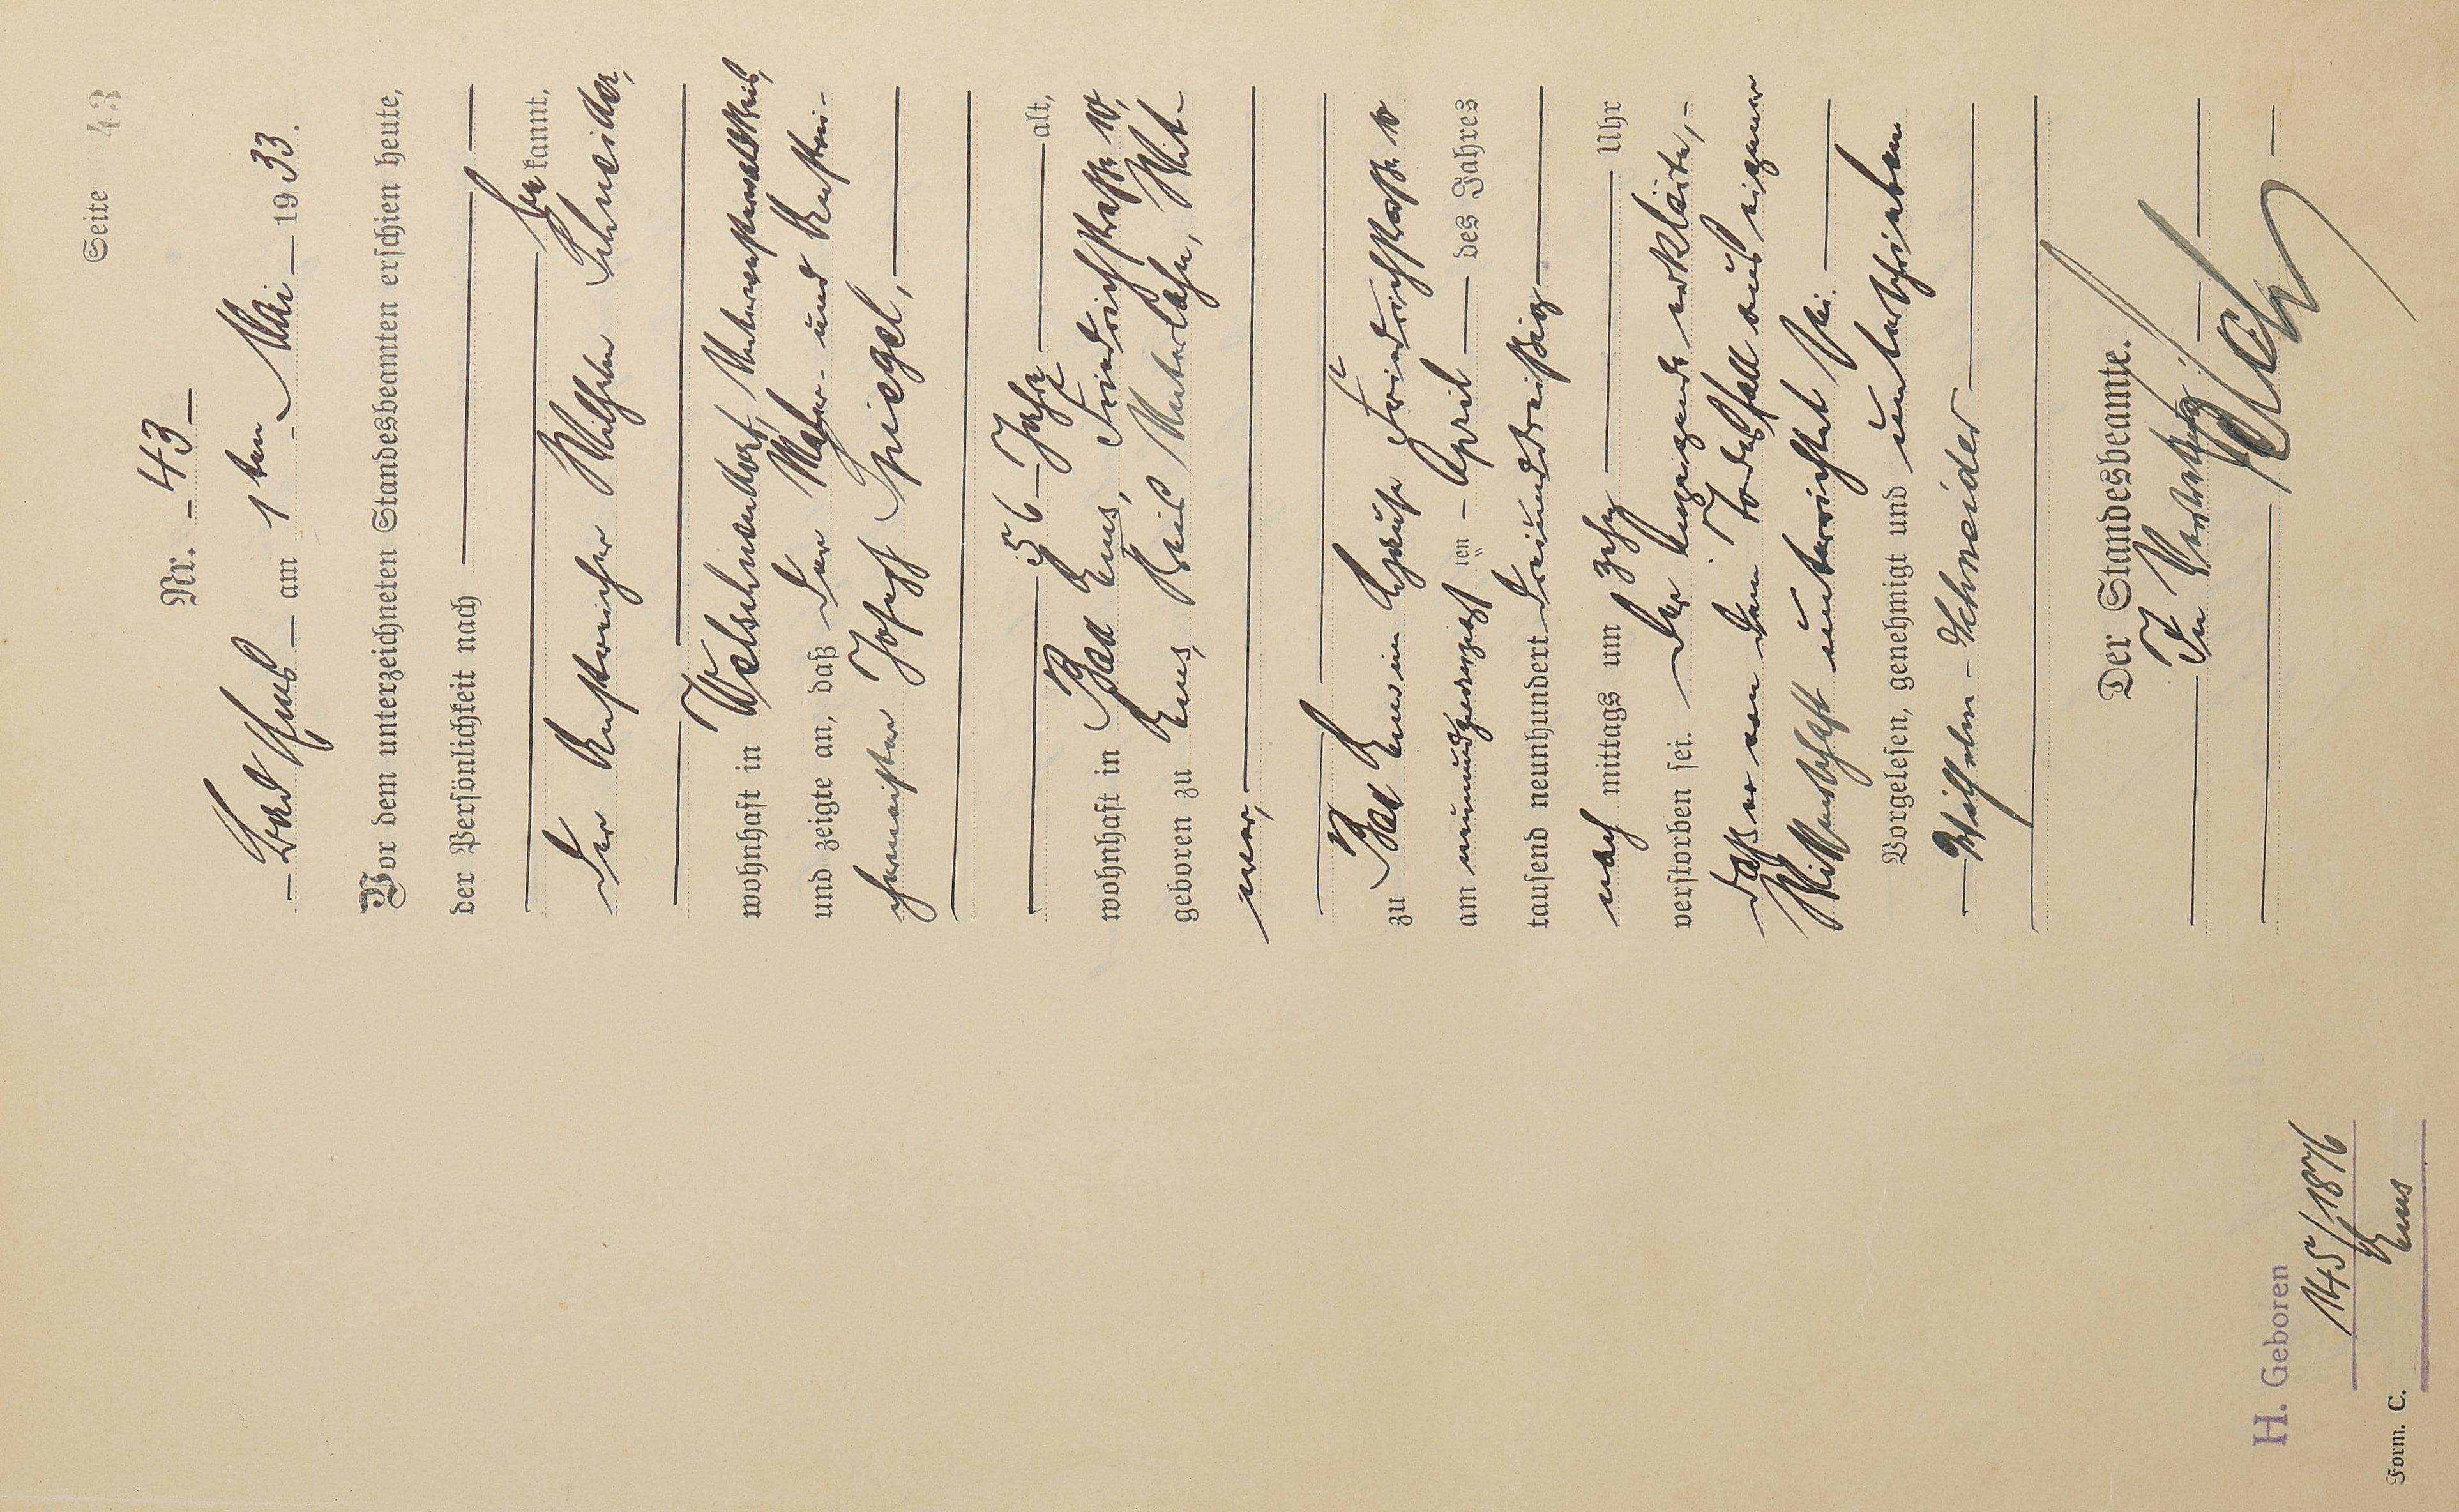 Seite 43
Nr. 43
Bad Ems am 1ten Mai 1933.
Vor dem unterzeichneten Standesbeamten erschien heute,
der Persönlichkeit nach
be kannt,
der Anstreicher Wilhelm Schneider,
wohnhaft in Welschneudorf, Unterwesterwaldkreis,
und zeigte an, daß der Maler- und Anstrei-
chermeister Joseph Spiegel,
56 Jahre alt,
wohnhaft in Bad Ems, Friedrichstraße 10,
geboren zu Ems, Kreis Unterlahn, Wit-
wer,
zu Bad Ems in Friedrichstraße 10
am neunundzwanzigsten April des Jahres
tausend neunhundert dreiunddreißig
nach mittags um zehn Uhr
verstorben sei. Der Anzeigende erklärte,
daß er von dem Todesfall aus eigener
Wissenschaft unterrichtet sei.
Vorgelesen, genehmigt und unterschrieben
Wilhelm Schneider
Der Standesbeamte.
In Vertretung:
H. Geboren
145/1876
Ems
Form. C.